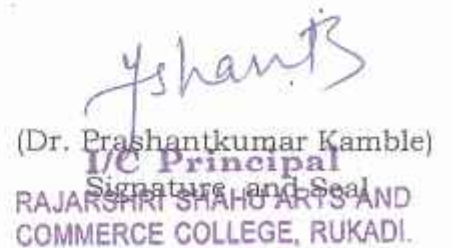 (Dr. Prashantkumar Kamble)
I/C Principal
Signature and Seal
RAJARSHRI SHAHU ARTS AND
COMMERCE COLLEGE, RUKADI.